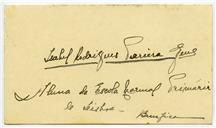 Isabel Rodrigues Pereira
Aluna da Escola Normal Primária
de Lisboa - Benfica